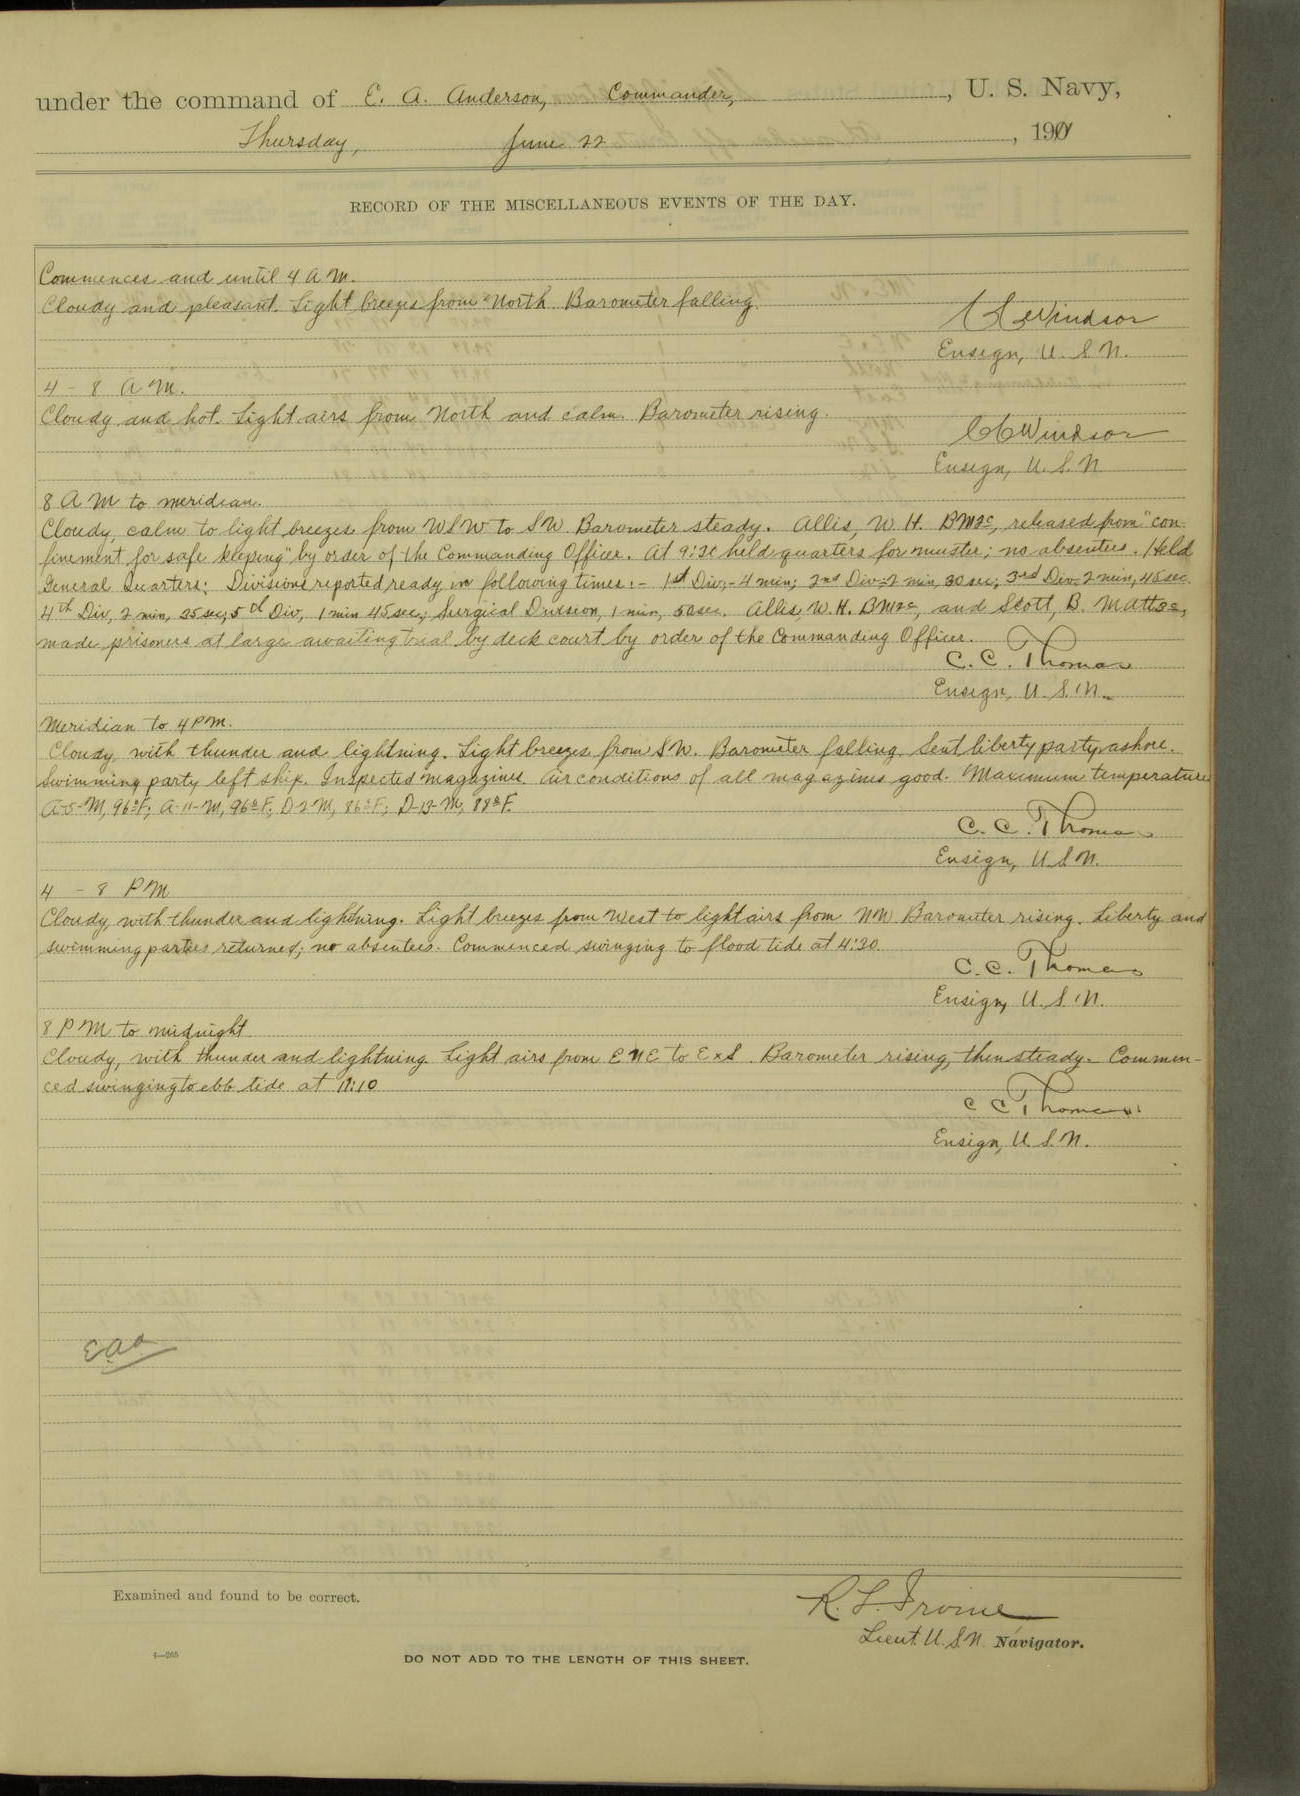 under the command of E. A. Anderson, Commander, U. S. Navy,
Thursday, June 22, 191
RECORD OF THE MISCELLANEOUS EVENTS OF THE DAY.
Commences and until 4 A M.
Cloudy and pleasant. Light breezes from North Barometer falling.
Windsor
Ensign, U. S N.
4 - 8 A M.
Cloudy and hot. Light airs from North and calm. Barometer rising.
Windsor
Ensign, U. S. N
8 A M to meridian.
Cloudy, calm to light breezes from WSW to SW. Barometer steady. Allis, W. H. BM2c, released from "con-
finement for safe keeping" by order of the Commanding Officer. At 9:30 held quarters for muster; no absentees. Held
General Quarters: Divisions reported ready in following times:- 1st Div:- 4 min; 2nd Div:- 2 min, 30 sec; 3rd Div:- 2 min, 45 sec.
4th Div, 2 min, 35 sec; 5th Div, 1 min 45 sec,; Surgical Division, 1 min, 50 sec. Allis, W. H. BM2c, and Scott, B. Matt3c,
made prisoners at large awaiting trial by deck court by order of the Commanding Officer.
C. C. Thomas
Ensign, U. S. N.
Meridian to 4 P M.
Cloudy, with thunder and lightning. Light breezes from S W. Barometer falling. Sent liberty party ashore.
Swimming party left ship. Inspected magazines. Air conditions of all magazines good. Maximum temperature
A-5-M, 96° F; A-11-M, 96° F; D-2-M, 86° F; D-13-M, 88° F.
C. C. Thomas
Ensign, U. S. N.
4 - 8 P M
Cloudy, with thunder and lightning. Light breezes from West to light airs from NW Barometer rising. Liberty and
swimming parties returned; no absentees. Commenced swinging to flood tide at 4:30.
C. C. Thomas
Ensign, U. S. N.
8 P M to midnight
Cloudy, with thunder and lightning. Light airs from E N E to E x S. Barometer rising, then steady. Commen-
ced swinging to ebb tide at 11:10
C C Thomas
Ensign, U. S. N.
E.A.A
Examined and found to be correct.
R. L. Irvine
Lieut. U. S N. Navigator.
4—265
DO NOT ADD TO THE LENGTH OF THIS SHEET.